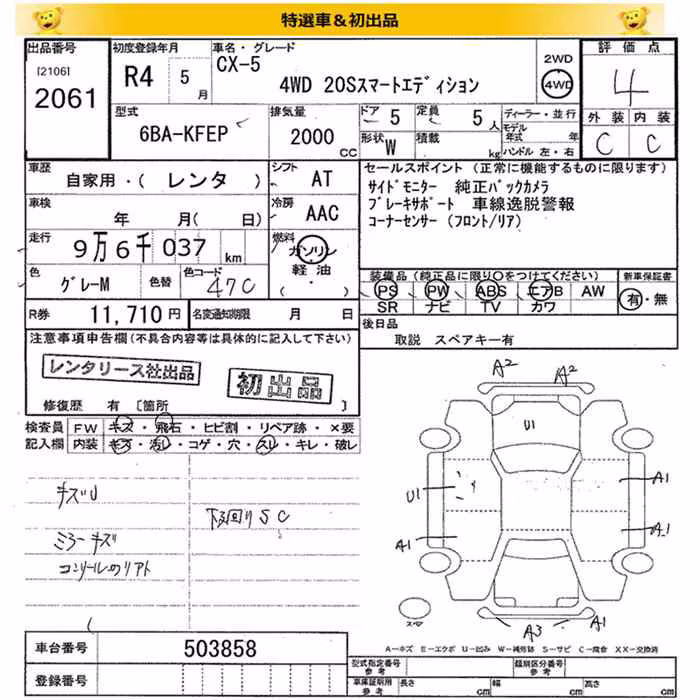 特選車＆初出品
出品番号 初度登録年月 車名・グレード 2WD 評価点
[2106] R4 5 CX-5 4WD 4
2061 月 4WD 20Sスマートエディション
型式 排気量 ドア 5 定員 5 人 ディーラー・並行 外装 内装
6BA-KFEP 2000 CC 形状 W 積載 kg モデル年式 年 C C
ハンドル 左・右
車歴 シフト セールスポイント (正常に機能するものに限ります)
自家用・( レンタ ) AT サイドモニター 純正バックカメラ
車検 冷房 ブレーキサポート 車線逸脱警報
年 月( 日) AAC コーナーセンサー (フロント/リア)
走行 燃料
9万6千037 km ガソリン
軽油
( ・ )
色 色替 色コード 装備品 (純正品に限り○をつけてください) 新車保証書
グレーM 47C PS PW ABS エアB AW 有・無
SR ナビ TV カワ
R券 11,710円 名変通知期限 月 日 後日品
取説 スペアキー有
注意事項申告欄 (不具合内容等は具体的に記入して下さい)
レンタリース社出品
初出品
修復歴 有 〔箇所 〕
検査員 FW キズ・飛石・ヒビ割・リペア跡・×要
記入欄 内装 キズ・汚レ・コゲ・穴・スレ・キレ・破レ
キズU
下回りSC
ミラーキズ
A2 A2
U1
U1 A1
A1 A1
A3 A1
スペア
A-キズ E-エクボ U-凹み W-補修跡 S-サビ C-腐食 XX-交換済
車台番号 503858
登録番号
型式指定番号 参考 類別区分番号 参考
車庫証明用 参考 長さ cm 幅 cm 高さ cm